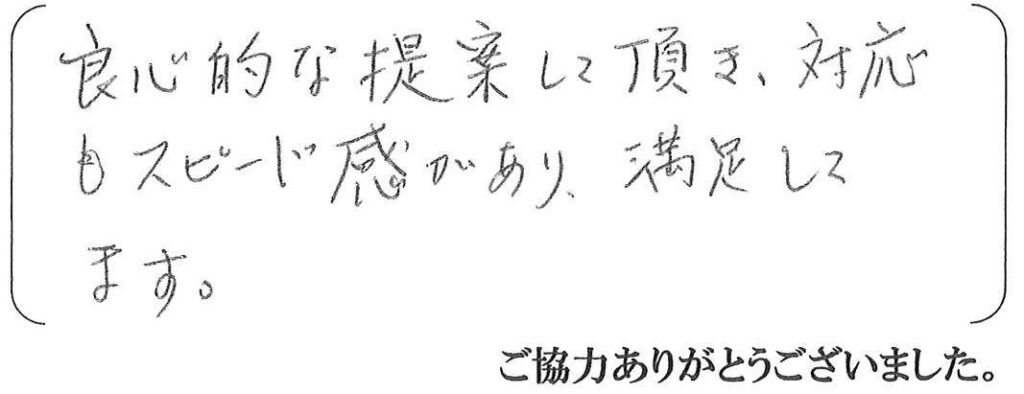 良心的な提案して頂き、対応
もスピード感があり、満足して
ます。
ご協力ありがとうございました。